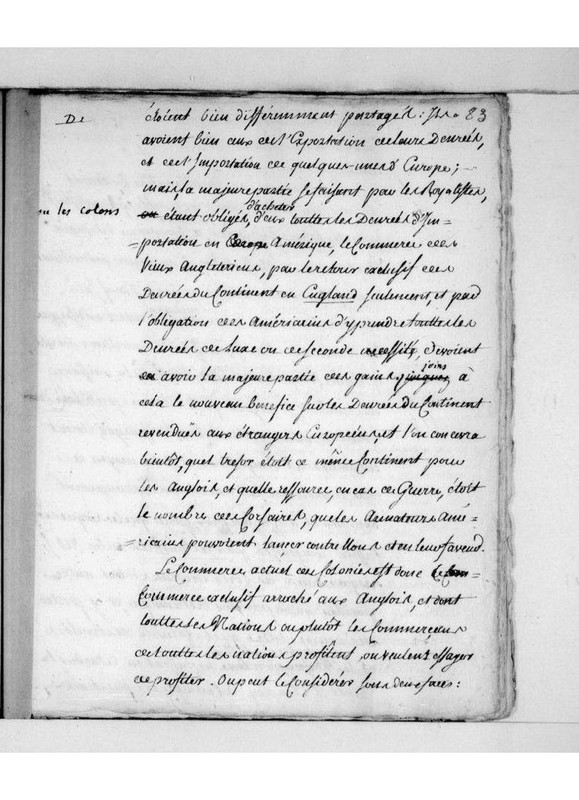 83
De
étoient bien différemment partagés : Ils
avoient bien eux et l'Exportation de leurs Denrées,
et de l'Importation de quelques-unes d'Europe ;
mais, la majeure partie se faisant par les Royalistes,
ou les colons
étant obligés, d'acheter d'eux touttes les Denrées d'Im-
=portation en Amérique, le Commerce des
vieux Angleteriens, par le retour exclusif des
Denrées du Continent en England seulement, et par
l'obligation des Américains d'y prendre touttes les
Denrées de Luxe ou de seconde necessité, devoient
avoir la majeure partie des gains, joins à
cela le nouveau benefice sur les Denrées du Continent
revenduës aux étrangers Européens, et l'on concevra
bientôt, quel tresor étoit ce même Continent pour
les Anglois, et quelle ressource, en cas de Guerre, étoit
le nombre des Corsaires, que les Armateurs Amé-
=ricains pouvoient lancer contre Nous et en leur faveur.
Le Commerce actuel des Colonies est donc
Commerce exclusif arraché aux Anglois, et dont
touttes les Nations ou plutôt les Commerçans
de touttes les nations profitent, ou veulent essayer
de profiter. On peut le Considérer sous deux faces :